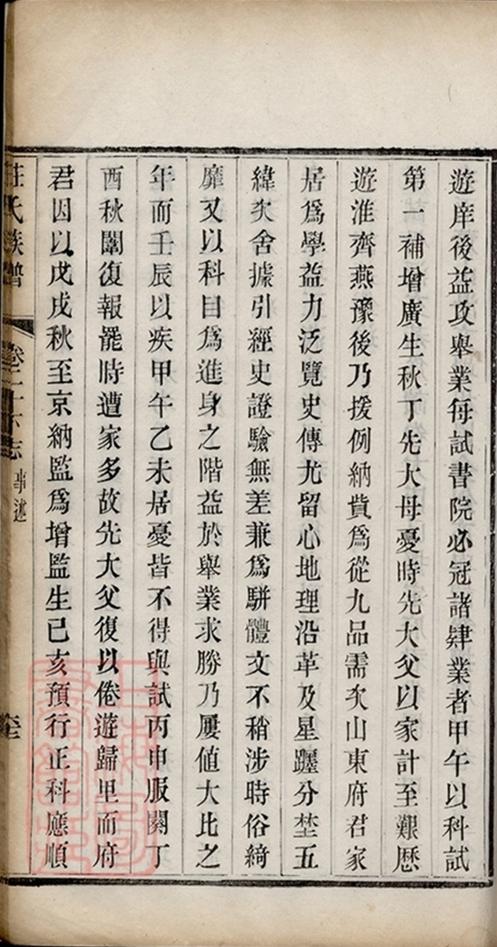 遊庠後益攻舉業每試書院必冠諸肄業者甲午以科試
第一補增廣生秋丁先大母憂時先大父以家計至艱歷
遊淮齊燕豫後乃援例納貲為從九品需次山東府君家
居為學益力泛覽史傳尤留心地理沿革及星躔分埜五
緯次舍據引經史證驗無差兼為駢體文不稍涉時俗綺
靡又以科目為進身之階益於舉業求勝乃屢值大比之
年而壬辰以疾甲午乙未居憂皆不得與試丙申服闋丁
酉秋闈復報罷時遭家多故先大父復以倦遊歸里而府
君因以戊戌秋至京納監為增監生己亥預行正科應順
汪氏族譜
卷二十下志
事述